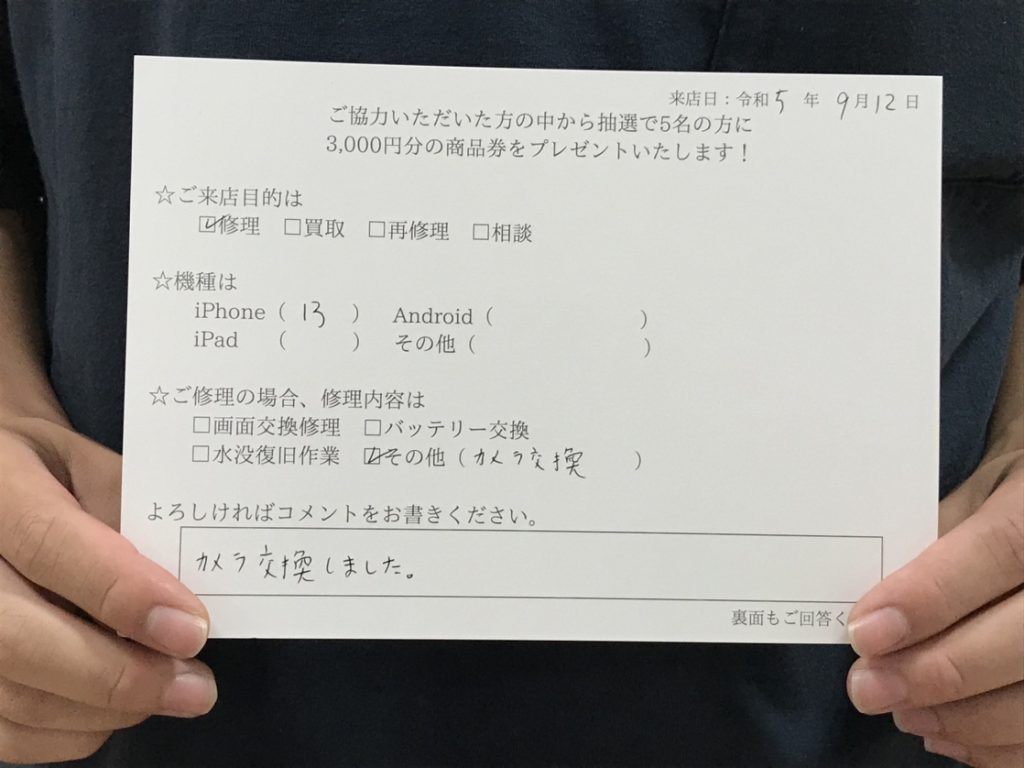 来店日：令和5年 9月12日
ご協力いただいた方の中から抽選で5名の方に
3,000円分の商品券をプレゼントいたします！
☆ご来店目的は
☑修理 □買取 □再修理 □相談
☆機種は
iPhone（ 13 ） Android（ ）
iPad （ ） その他（ ）
☆ご修理の場合、修理内容は
□画面交換修理 □バッテリー交換
□水没復旧作業 ☑その他（カメラ交換 ）
よろしければコメントをお書きください。
カメラ交換しました。
裏面もご回答く